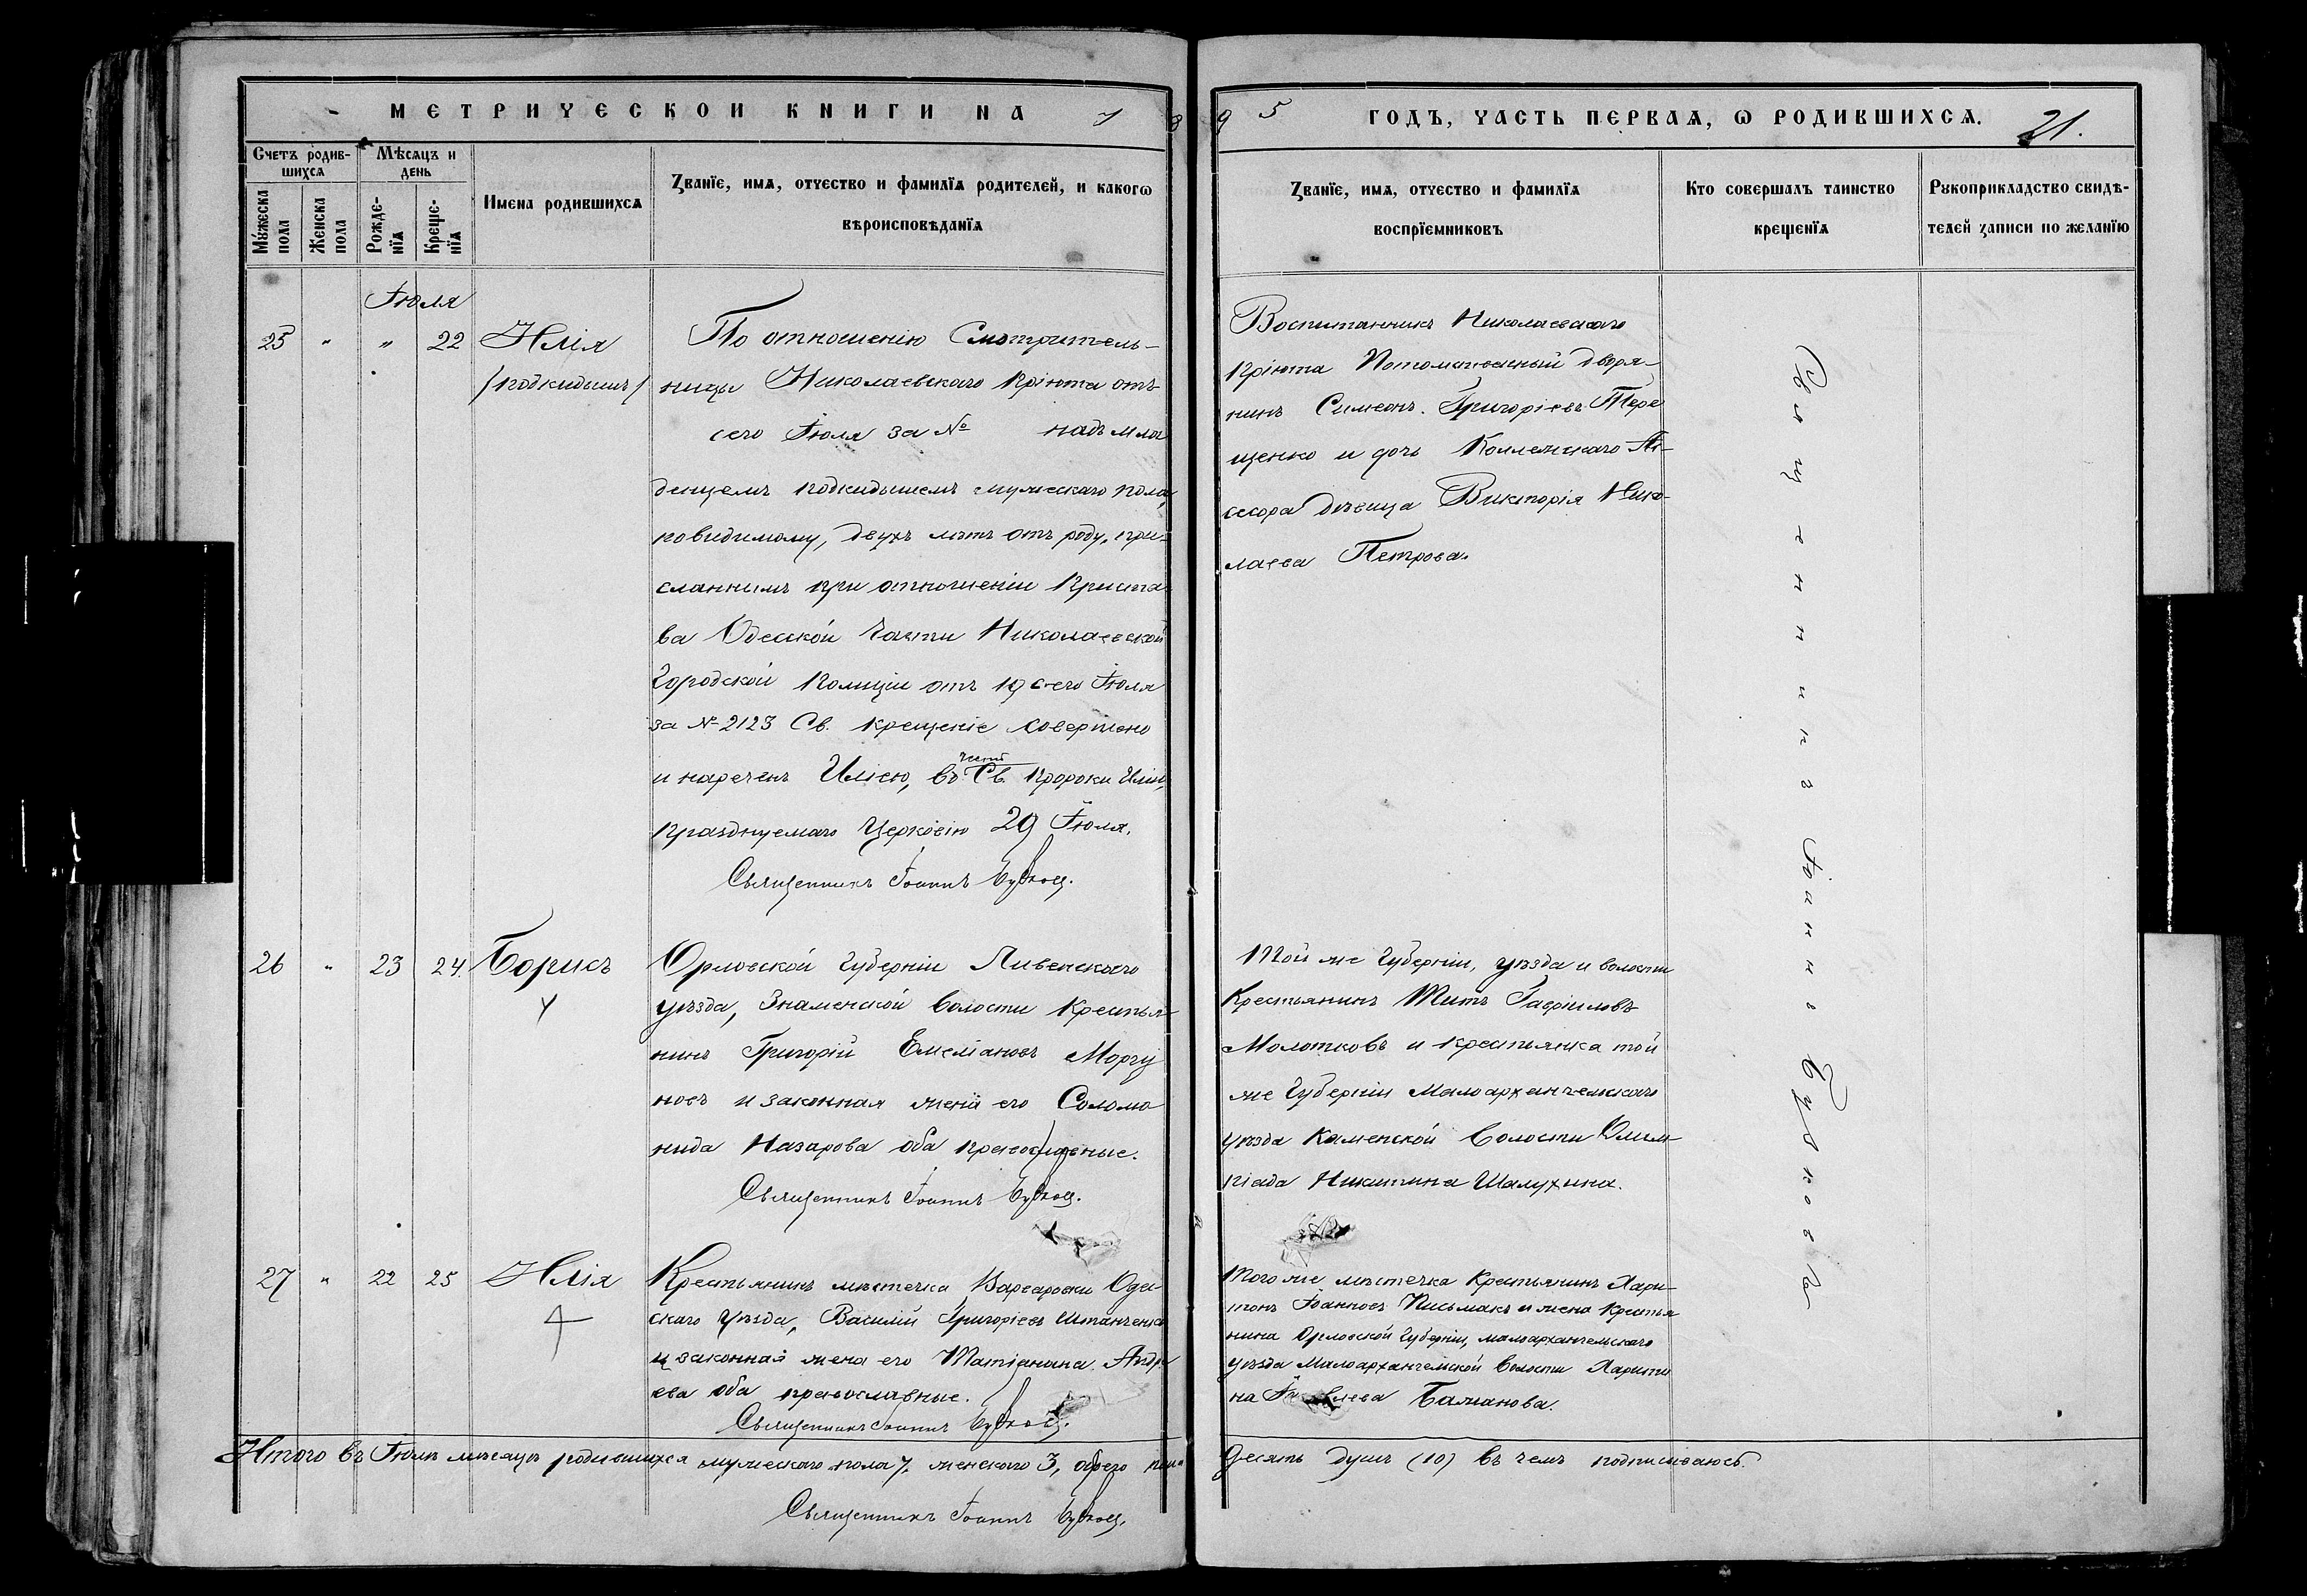 МЕТРИЧЕСКОЙ КНИГИ НА 1895 ГОДЪ, ЧАСТЬ ПЕРВАѦ, Ѡ РОДИВШИХСѦ. 21.
Счетъ родив-
шихсѧ
Мѣсѧцъ и
день
Мꙋжеска
пола
Женска
пола
Рожде-
нїѧ
Креще-
нїѧ
Имена родившихсѧ
Званїе, имѧ, отчество и фамилїѧ родителей, и какогѡ
вѣроисповѣданїѧ
Званїе, имѧ, отчество и фамилїѧ
воспрїемниковъ
Кто совершалъ таинство
крещенїѧ
Рꙋкоприкладство свидѣ-
телей записи по желанїю
Іюля
25 " " 22 Илія
/подкидышъ/
По отношенію Смотритель-
ницы Николаевскаго Пріюта отъ
сего Іюля за № надъ мла
денцемъ подкидышемъ мужескаго пола,
повидимому, двухъ лѣтъ отъ роду, при-
сланнымъ при отношеніи Приста-
ва Одесской Части Николаевской
Городской Полиціи отъ 19 сего Іюля
за № 2123 Св. крещеніе совершено
и нареченъ Иліею, въ честь Св. Пророка Иліи,
празднуемаго Церковію 20 Іюля.
Священникъ Іоаннъ
Воспитанникъ Николаевскаго
Пріюта Потомственный дворя-
нинъ Симеонъ Григоріевъ Тере
щенко и дочь Коллежскаго Ас-
сесора дѣвица Викторія Нико-
лаева Петрова.
Священникъ Іоаннъ
26 " 23 24. Борисъ
Орловской Губерніи Ливенскаго
уѣзда, Знаменской Волости Крестья-
нинъ Григорій Емеліановъ Моргу
новъ и законная жена его Соломо
нида Назарова оба православные.
Священникъ Іоаннъ
Той же Губерніи, уѣзда и волости
Крестьянинъ Титъ Гавріиловъ
Молотковъ и крестьянка той
же Губерніи Малоархангельскаго
уѣзда Каменской Волости Олим-
піада Никитина Шалухина.
27 " 22 25 Илія
Крестьянинъ мѣстечка Варваровки Одес-
скаго уѣзда, Василій Григоріевъ Штанченко
и законная жена его Татіанана Андре
ева оба православные.
Священникъ Іоаннъ
Того же мѣстечка Крестьянинъ Хари-
тонъ Іоанновъ Письмакъ и жена Крестья
нина Орловской Губерніи, малоархангельскаго
уѣзда Малоархангельской Волости Харити
на Балжанова.
Итого въ Іюлѣ мѣсяцѣ родившихся мужескаго пола 7, женскаго 3, обоего пола
десять душъ (10) въ чемъ подписываюсь.
Священникъ Іоаннъ